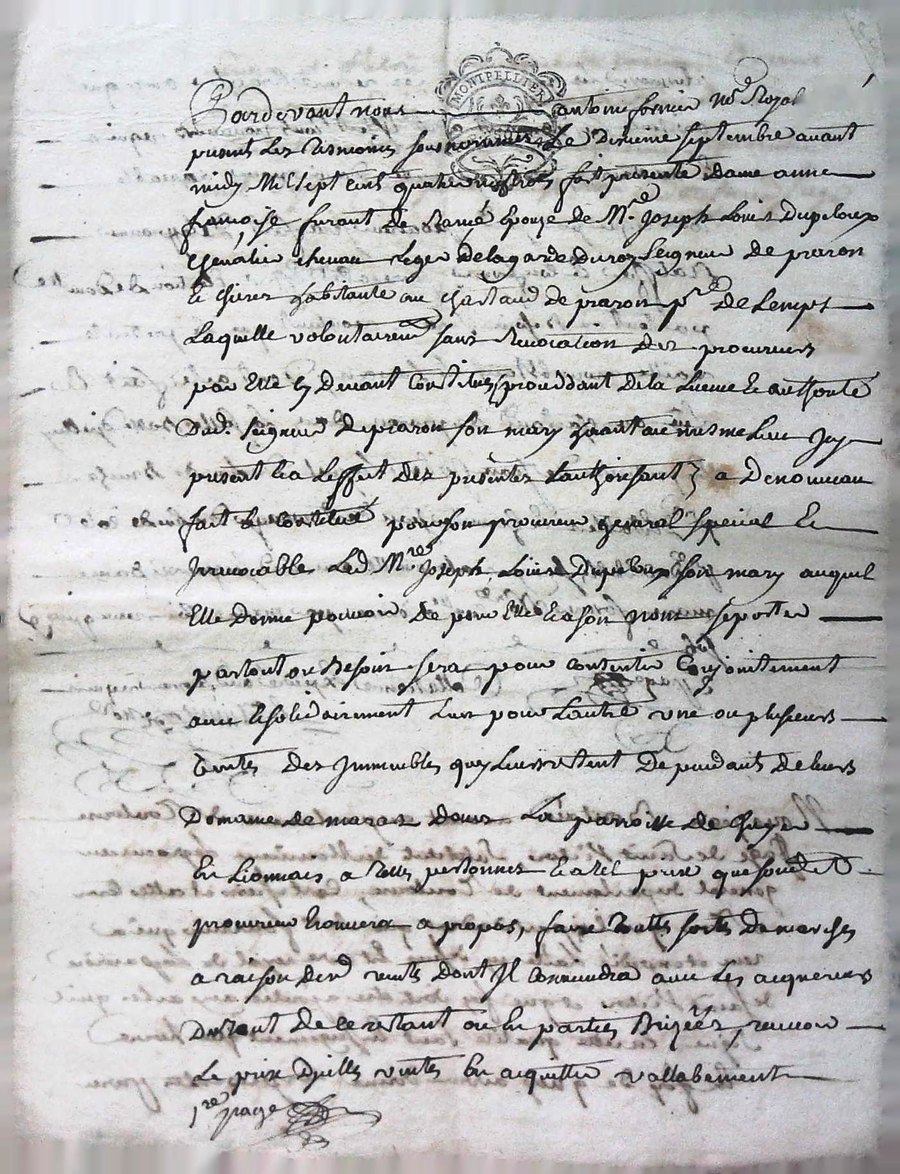 MONTPELLIER
Pardevant nous antoine fornier No.re Royal
presents Les Tesmoins sousnommés Le Dixieme septembre avant
midy Mil sept cens quatre fait presente dame anne
françoise furant de épouze de M.re Joseph Louis Dupeloux
chevalier chevau Leger delagarde du roy Seigneur de praron
le habitante au Chastaud de praron p.se De Lemps
Laquelle volontairem.t sans Revocation des procureurs
par Elle cy devant Constitués procedant de la Licence Et authorité
Dud. Seigneur de praron son mary Estant au mesme Lieu Jcy
present Et a L'effect des presentes L'authorisant a De nouveau
fait Et Constitué pour son procureur general special Et
Jrrevocables Led M.re Joseph Louis Dupeloux son mary auquel
Elle Donne pouvoir de pour Elle Et a son nom se porter
partout ou Besoin sera pour consentir Conjointement
avec Et solidairement L'un pour L'autre une ou plusieurs
ventes Des Jmmeubles quy Leur restent Dependants de leurs
Domaine de maras dans La parroisse de
En Lionnais a Telles personnes Et a tel prix que sond.t S.r
procureur trouvera a propos, faire Touttes sortes De marches
a raison desd. ventes dont Jl Conviendra avec Les acquereurs
Du tout De ce restant ou En parties Brizées, recevoir
Le prix D'jcelles ventes En acquitter vallabement
1.re page